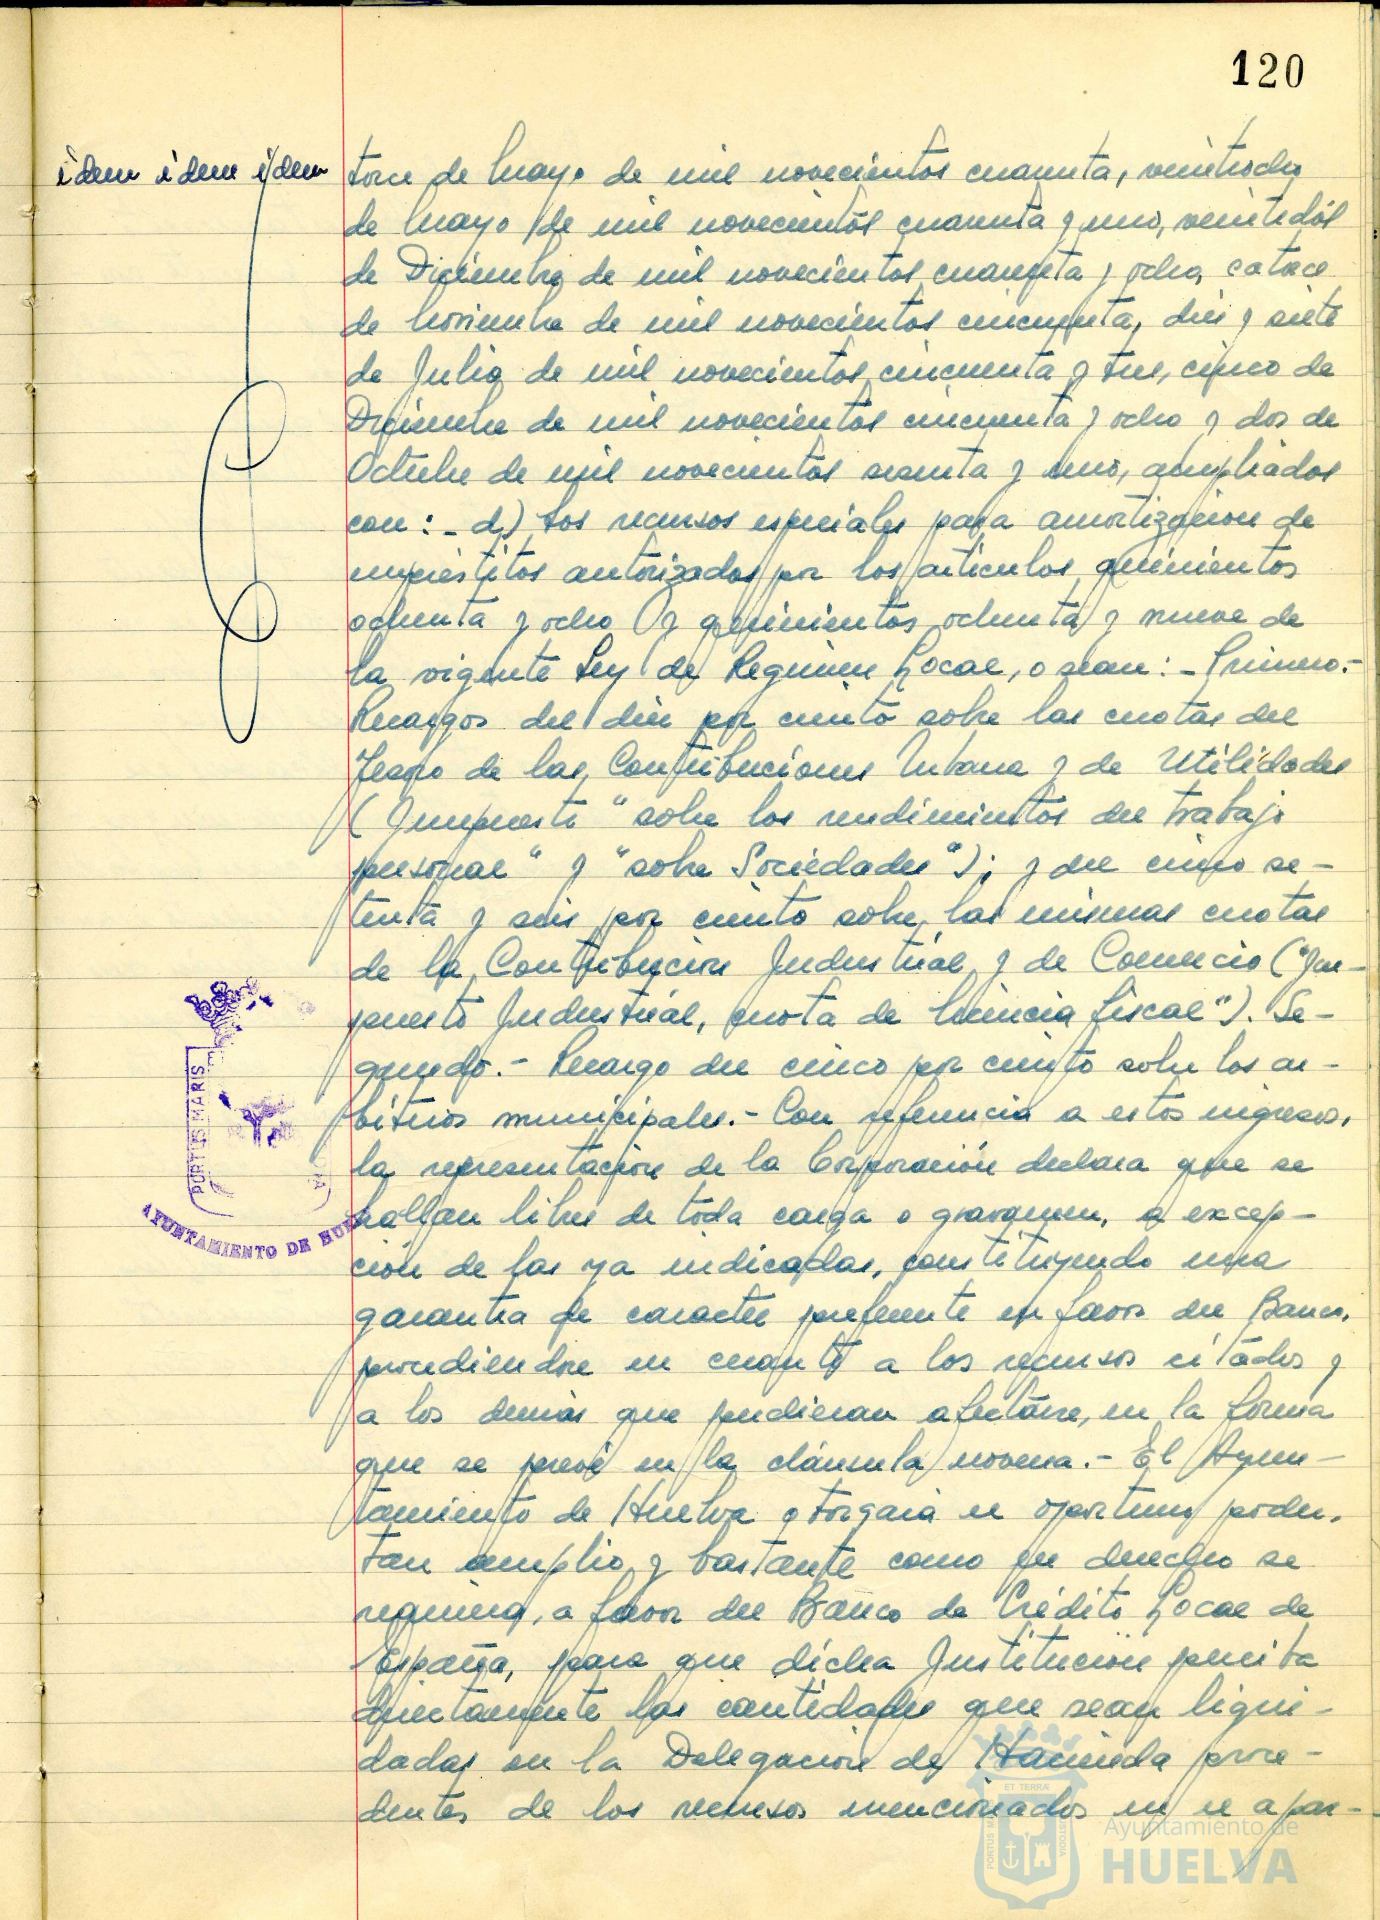 120
idem idem idem
torce de Mayo de mil novecientos cuarenta, veintiocho
de Mayo de mil novecientos cuarenta y uno, veintidós
de Diciembre de mil novecientos cuarenta y ocho, catorce
de Noviembre de mil novecientos cincuenta, diez y siete
de Julio de mil novecientos cincuenta y tres, cinco de
Diciembre de mil novecientos cincuenta y ocho y dos de
Octubre de mil novecientos sesenta y uno, ampliados
con: - d) Los recursos especiales para amortización de
empréstitos autorizados por los artículos quinientos
ochenta y ocho y quinientos ochenta y nueve de
la vigente Ley de Regimen Local, o sean: - Primero.-
Recargos del diez por ciento sobre las cuotas del
Tesoro de las Contribuciones Urbana y de Utilidades
(Impuesto "sobre los rendimientos del trabajo
personal" y "sobre Sociedades"); y del cinco se-
tenta y seis por ciento sobre las mismas cuotas
de la Contribución Industrial y de Comercio ("Im-
puesto Industrial, cuota de licencia fiscal"). Se-
gundo.- Recargo del cinco por ciento sobre los ar-
bitrios municipales.- Con referencia a estos ingresos,
la representación de la Corporación declara que se
hallan libres de toda carga o gravamen, a excep-
ción de las ya indicadas, constituyendo una
garantia de caracter preferente en favor del Banco,
procediendose en cuanto a los recursos citados y
a los demás que pudieran afectarse, en la forma
que se prevé en la cláusula novena.- El Ayun-
tamiento de Huelva otorgará el oportuno poder,
tan amplio y bastante como en derecho se
requiera, a favor del Banco de Crédito Local de
España, para que dicha Institución perciba
directamente las cantidades que sean liqui-
dadas en la Delegación de Hacienda proce-
dentes de los recursos mencionados en el apar-
PORTUS MARIS
AYUNTAMIENTO DE HUE
ET TERRÆ
PORTUS MA
CUSTODIA
Ayuntamiento de
HUELVA